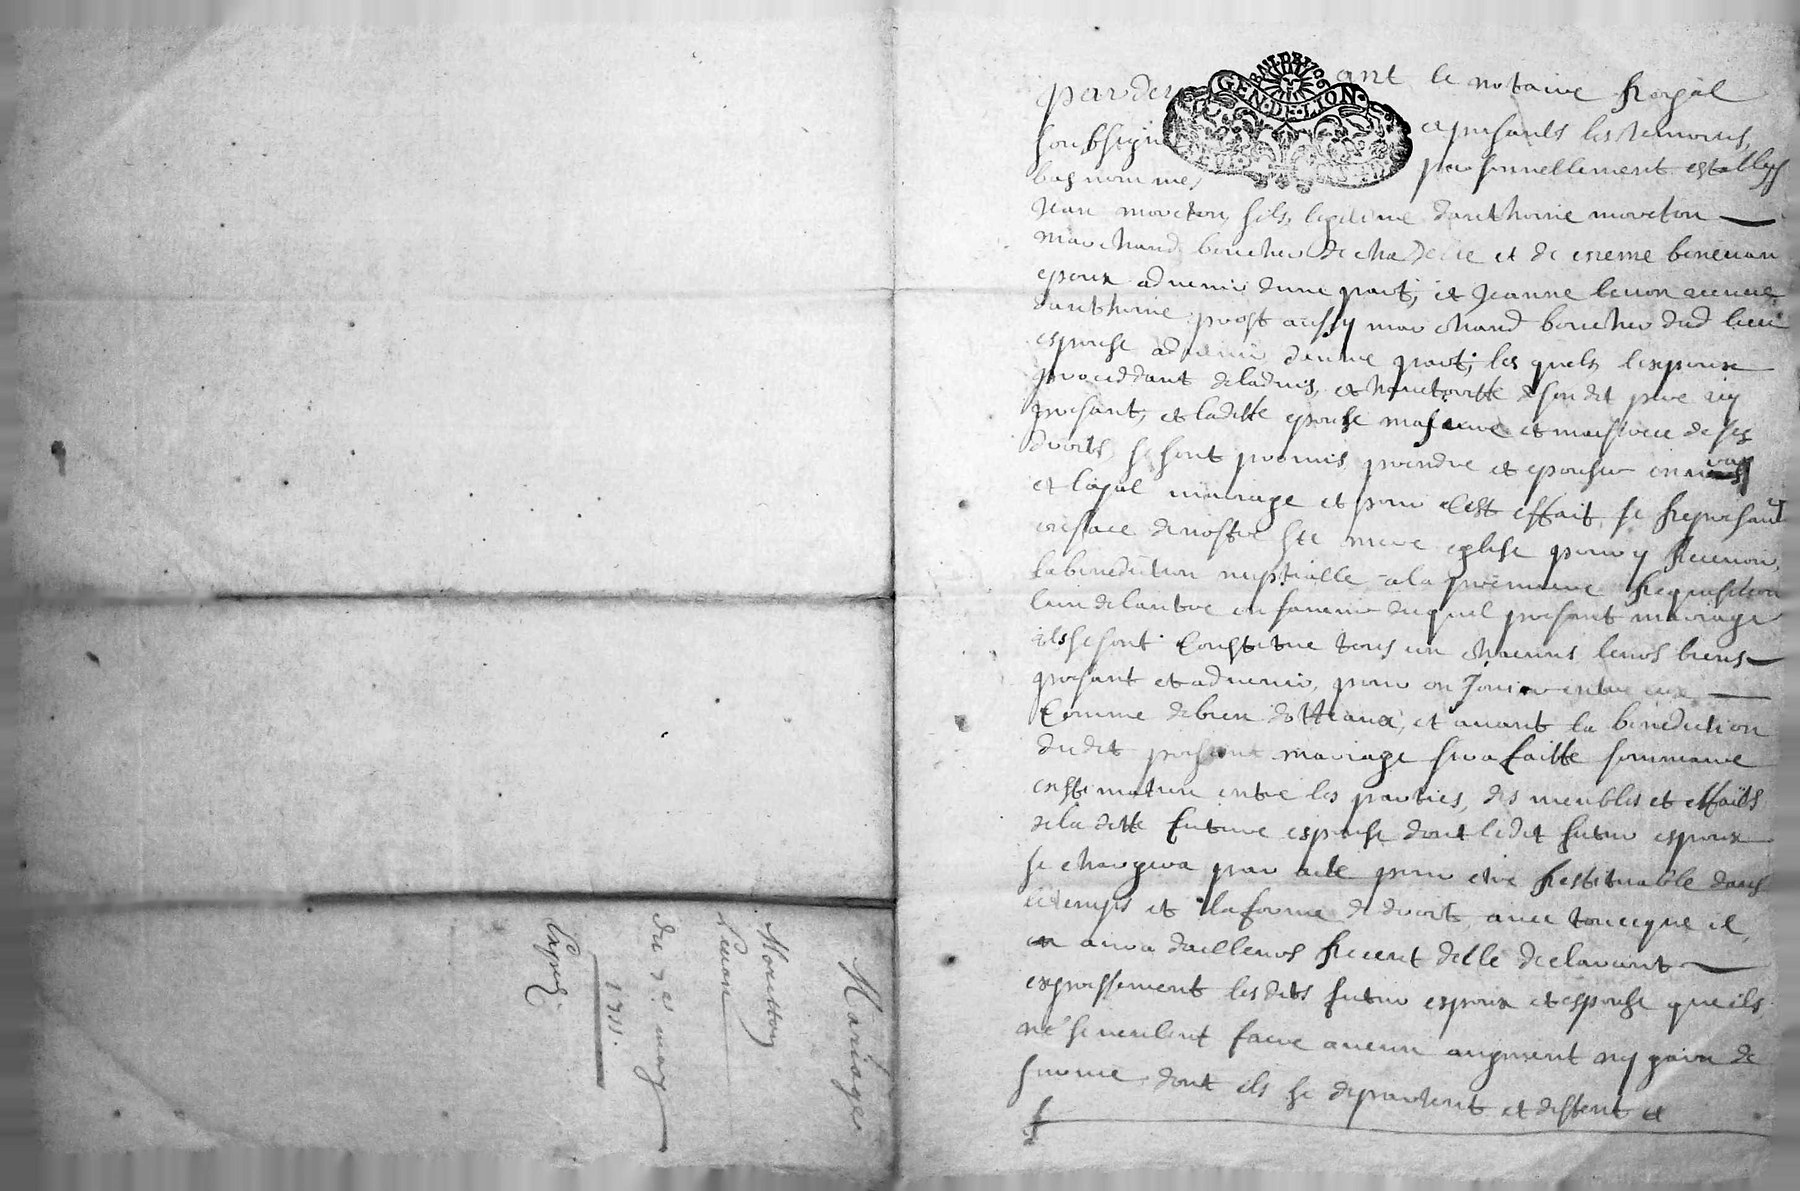 Mariage
Moretton
Leuon
du 7e may
1711.
Exped.
BAIL DE 1706
GEN·DE·LION·
pardeuant le notaire Royal
soubsigne et presants les temoins
bas nommes personnellement establys
Jean moreton fils legitime danthoine moreton
marchand boucher de et de
epoux aduenir dune part, et Jeanne leuon
danthoine prost aussy marchand boucher dud lieu
espouse aduenir dautre part; les quels lexpoux
proceddant de laduis, et hauctoritte de son dit pere icy
presant, et laditte epouse majeure et maistrece de ses
droits, se sont promis prendre et epouser en vray
et loyal mariage et pour cest effait, se representer
en face de nostre ste mere eglise pour y Receuoir
la benediction nuptialle a la premiere Requisition
lun de lautre en faueur duquel presant mariage
ils se sont Constitue tous un chacuns leurs biens
presant et aduenir, pour en Jouir entre eux
Comme de bien dotteaux, et auant la benediction
du dit presant mariage sera faitte sommaire
estimation entre les parties, des meubles et effaits
de la ditte future espouse dont ledit futur espoux
se chargera par acte pour etre Restituable dans
le temps et la forme de droit, auec tout ce que il
en aura dailleurs Receut delle declarant
expressement les dits futur espoux et espouse que ils
ne se veulent faire aucun augment ny gain de
suruie dont ils se departent et distent et